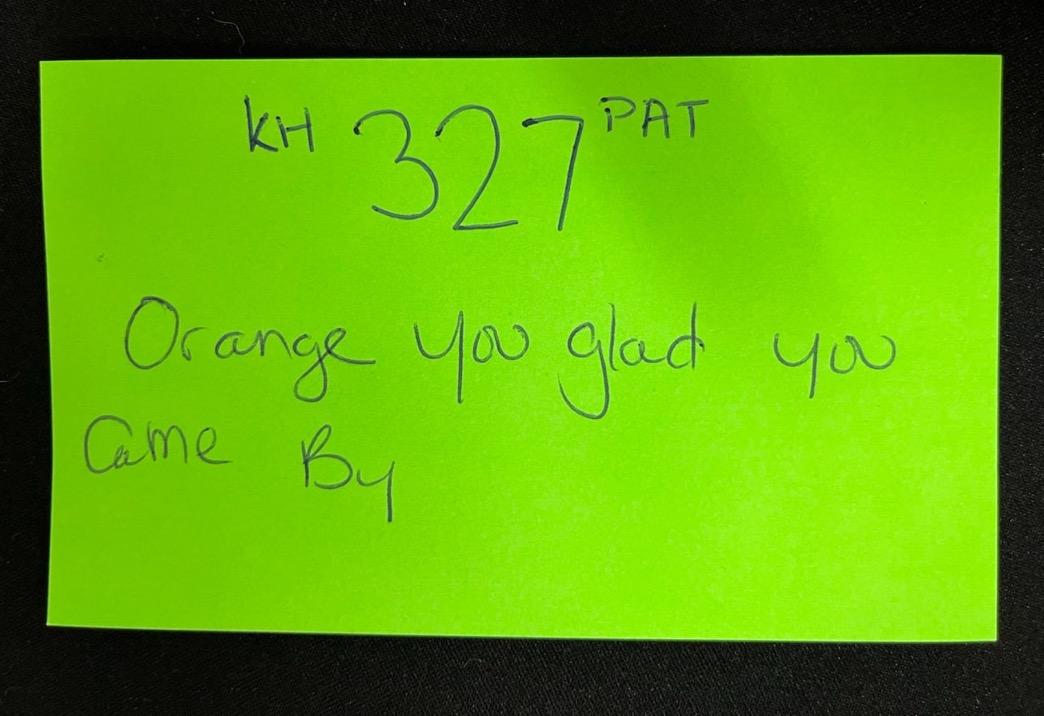 KH 327 PAT
Orange you glad you
Came By